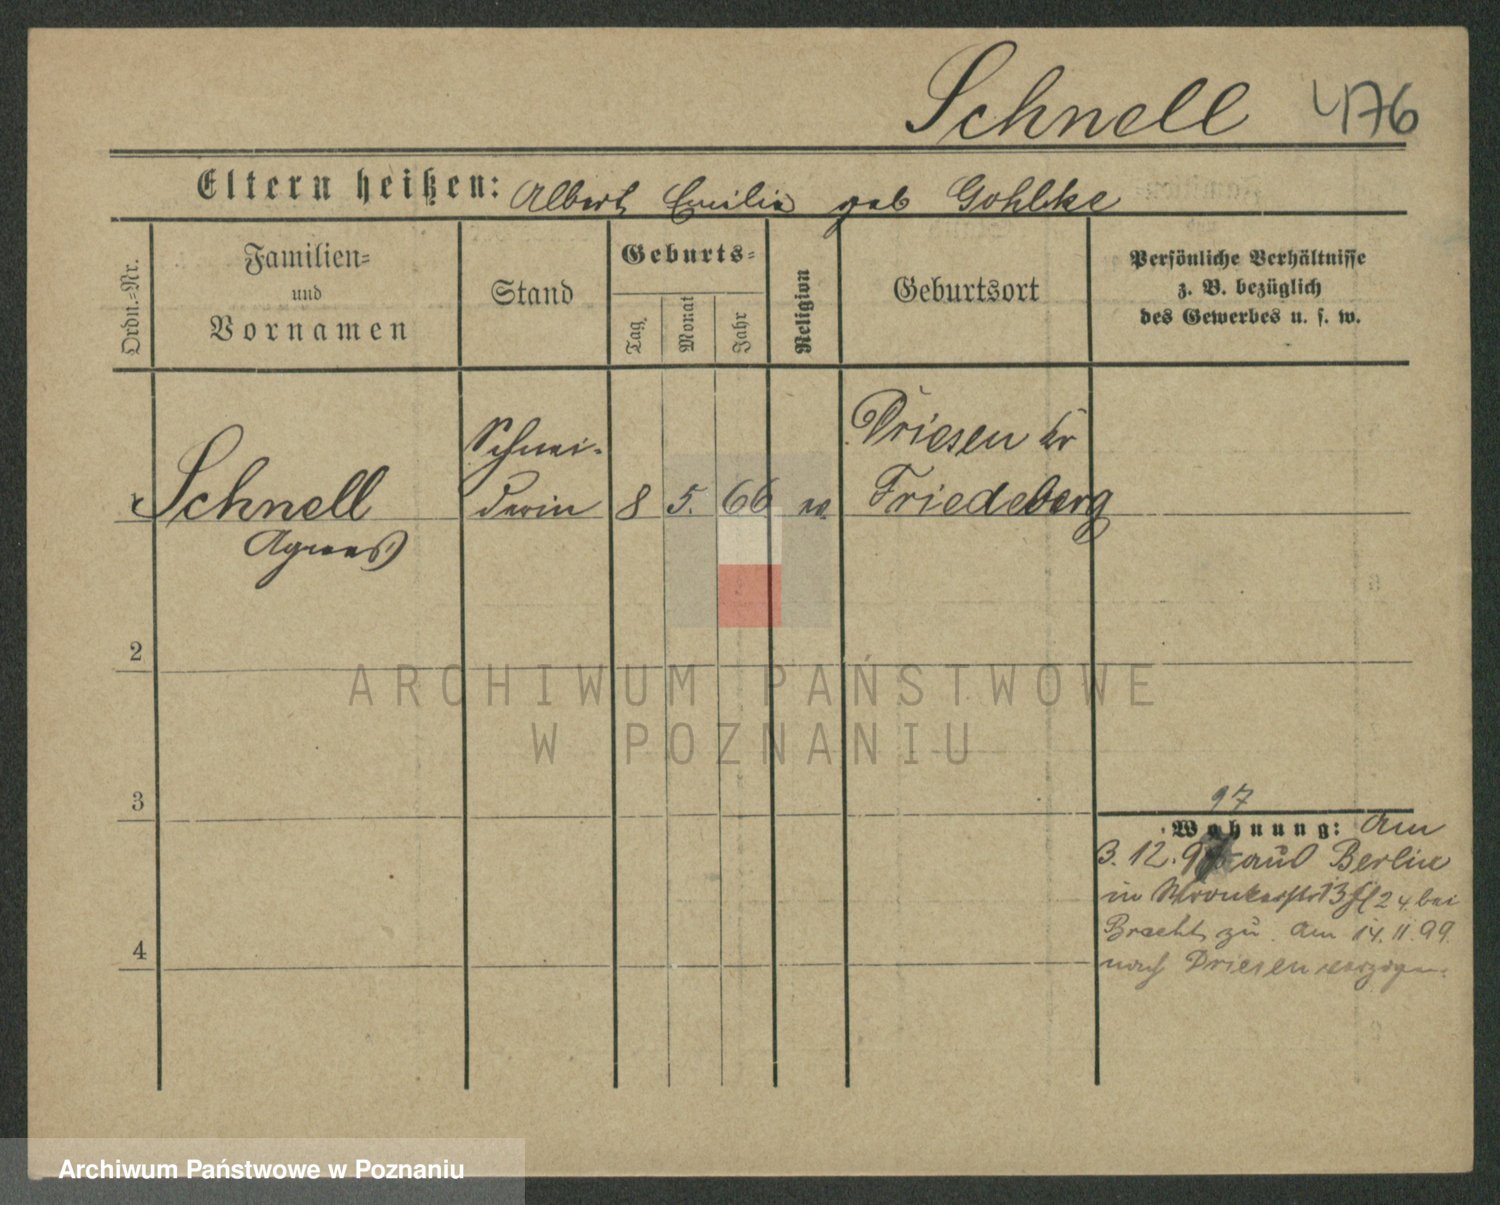 Schnell 476
Eltern heißen: Albert Emilie geb Gohlke
Ordn.-Nr.
Familien-
und
Vornamen
Stand
Geburts-
Tag
Monat
Jahr
Religion
Geburtsort
Persönliche Verhältnisse
z. B. bezüglich
des Gewerbes u. s. w.
Schnei-
Driesen Kr
Schnell derin 8 5. 66 Friedeberg
Agnes
2
ARCHIWUM PAŃSTWOWE
W POZNANIU
3
97
Wohnung: Am
3. 12. 97 aus Berlin
in 13 24 bei
Bracht zu. Am 14. 11. 99.
nach Driesen verzogen.
4
Archiwum Państwowe w Poznaniu